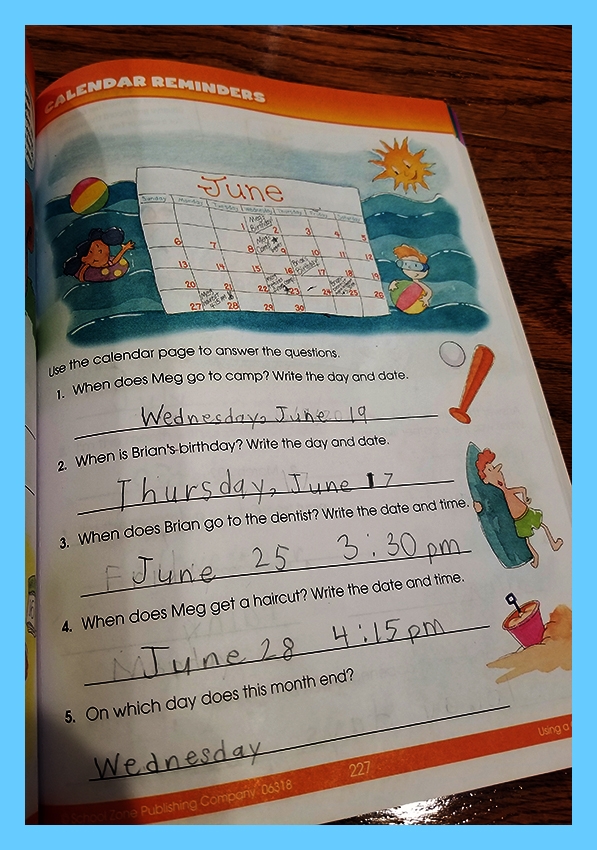 CALENDAR REMINDERS
June
Sunday Monday Tuesday Wednesday Thursday Friday Saturday
1 2 3 4 5
Meg's Birthday
6 7 8 9 10 11 12
Meg
13 14 15 16 17 18 19
Brian's Birthday
20 21 22 23 24 25 26
27 28 29 30
Use the calendar page to answer the questions.
1. When does Meg go to camp? Write the day and date.
Wednesday, June 19
2. When is Brian's birthday? Write the day and date.
Thursday, June 17
3. When does Brian go to the dentist? Write the date and time.
June 25 3:30 pm
4. When does Meg get a haircut? Write the date and time.
June 28 4:15 pm
5. On which day does this month end?
Wednesday
Publishing Company 06318
227
Using a